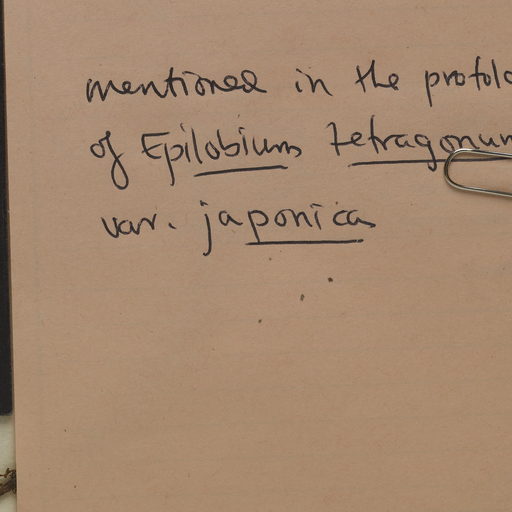 mentioned in the protolo
of Epilobium tetragonum
var. japonica